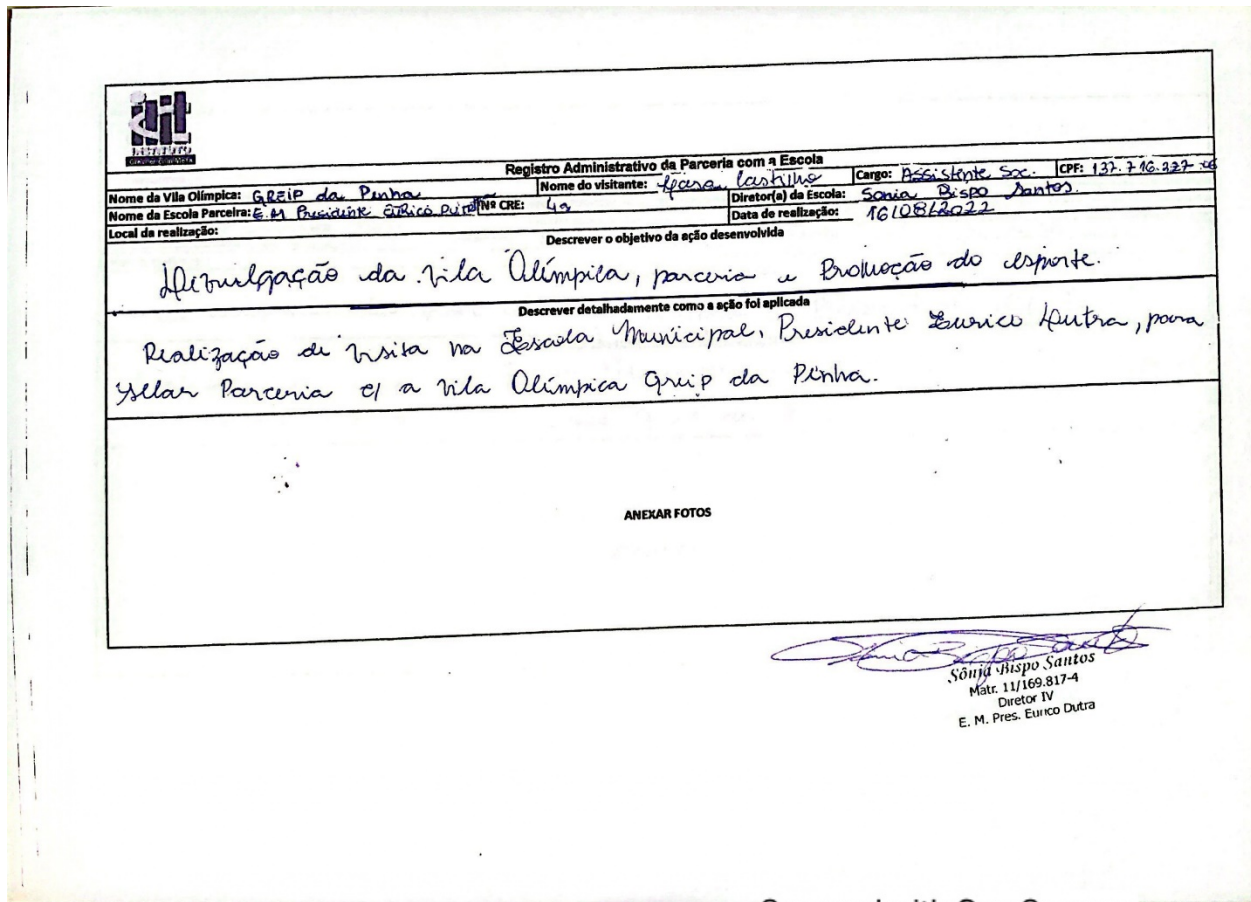 INSTITUTO
Registro Administrativo da Parceria com a Escola
Nome da Vila Olímpica: GREIP da Penha Nome do visitante: Castilho Cargo: Assistente Soc. CPF: 137.716.227
Nome da Escola Parceira: E.M Presidente Eurico Nº CRE: 4ª Diretor(a) da Escola: Sonia Bispo Santos.
Local da realização: Data de realização: 16/08/2022
Descrever o objetivo da ação desenvolvida
Divulgação da Vila Olímpica, parceria e Promoção do esporte.
Descrever detalhadamente como a ação foi aplicada
Realização de Visita na Escola Municipal, Presidente Eurico Dutra, para
Parceria c/ a Vila Olímpica Greip da Penha.
ANEXAR FOTOS
Sônia Bispo Santos
Matr. 11/169.817-4
Diretor IV
E. M. Pres. Eurico Dutra